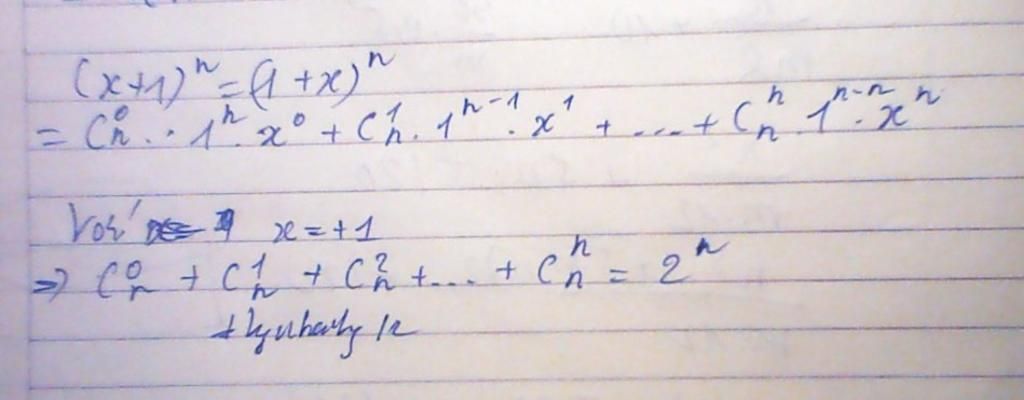 (x+1)^n = (1+x)^n
= C_n^0 . 1^n . x^0 + C_n^1 . 1^{n-1} . x^1 + ... + C_n^n . 1^{n-n} . x^n
Với x = +1
=> C_n^0 + C_n^1 + C_n^2 + ... + C_n^n = 2^n